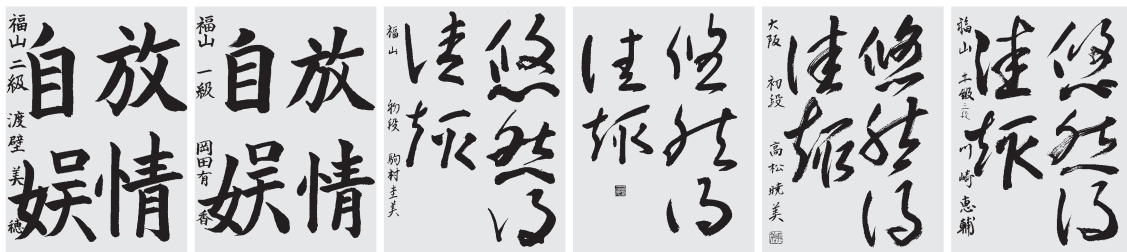 放情
自娯
福山 二級 渡壁 美穂
放情
自娯
福山 一級 岡田有香
悠然得
佳趣
福山 初段 駒村圭美
悠然得
佳趣
悠然得
佳趣
大阪 初段 高松暁美
悠然得
佳趣
福山 三段 川崎恵輔